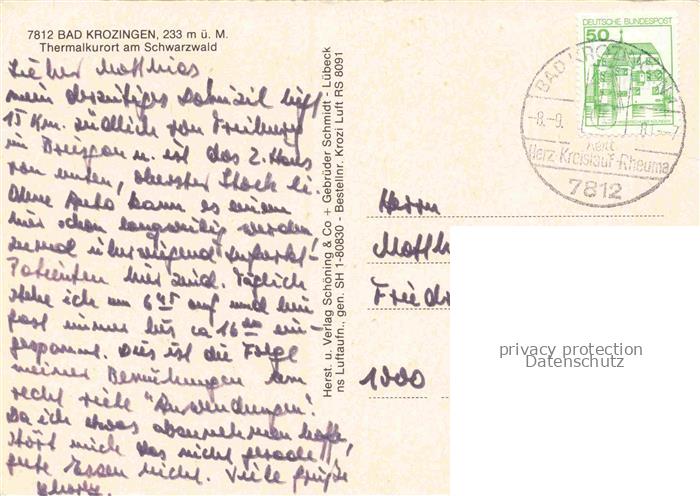 7812 BAD KROZINGEN, 233 m ü. M.
Thermalkurort am Schwarzwald
Lieber Matthias
mein derzeitiges Domizil liegt
15 Km. südlich von Freiburg
im Breisgau u. ist das 2. Haus
von unten, oberster Stock li.
Ohne Auto kann es einem
hier schon langweilig werden
zumal überwiegend Infarkt-
Patienten hier sind. Täglich
stehe ich um 6 45 auf und bin
fast immer bis ca 16 00 ein-
gespannt. Dies ist die Folge
meiner Bemühungen um
recht viele "Anwendungen".
Da ich etwas abnehmen hoffe,
stört mich das nicht gerade
gute Essen nicht. Viele Grüße
Herst. u. Verlag Schöning & Co + Gebrüder Schmidt - Lübeck
ns Luftaufn., gen. SH 1-80830 - Bestellnr. Krozi Luft RS 8091
DEUTSCHE BUNDESPOST
50
BAD KROZINGEN
-8.-9.
Herz-Kreislauf-Rheuma
7812
Herrn
Matth
Friedr
1000
privacy protection
Datenschutz